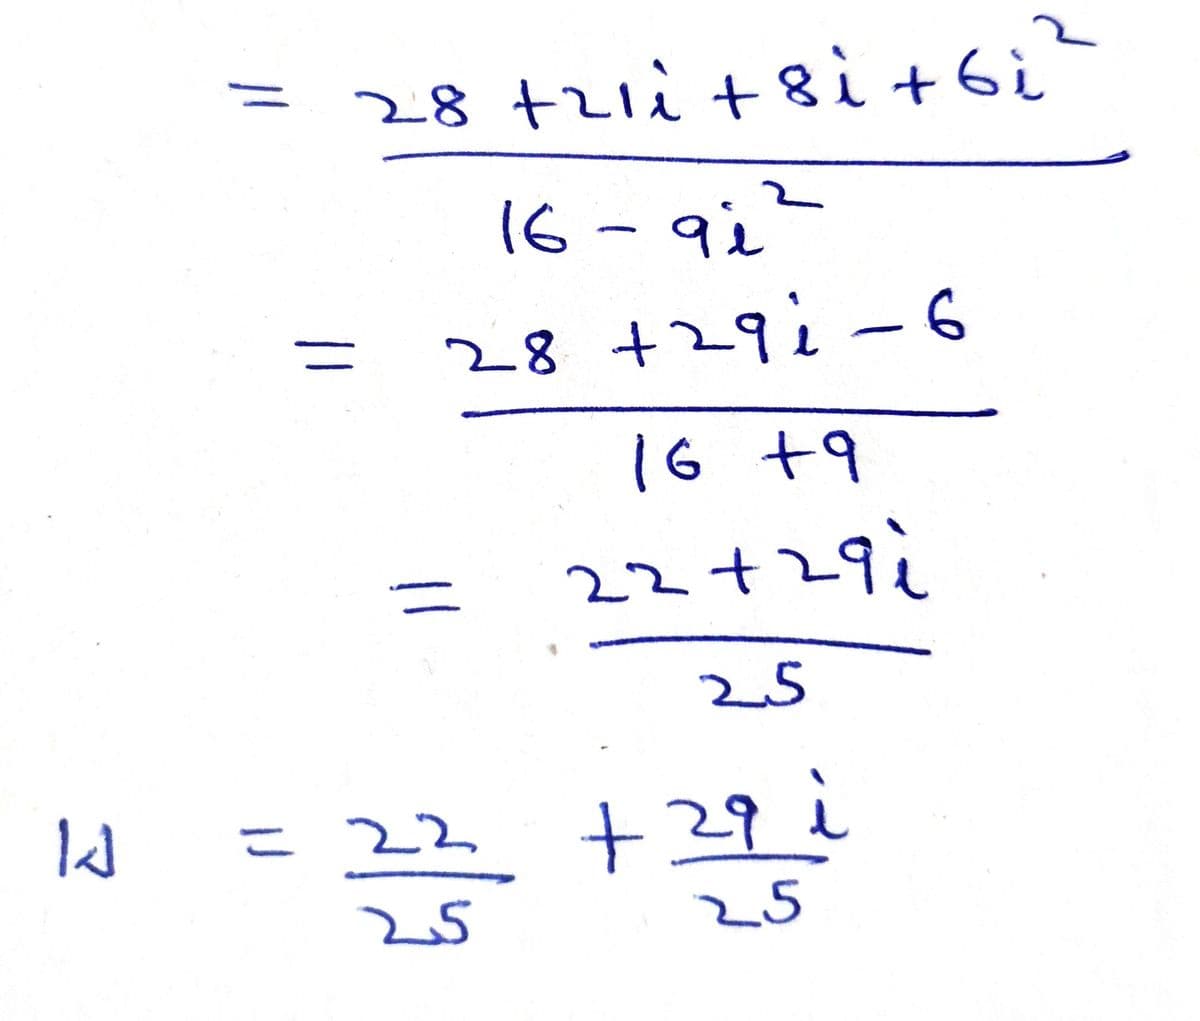 = 28 + 21i + 8i + 6i²
16 - 9i²
= 28 + 29i - 6
16 + 9
= 22 + 29i
25
= 22 + 29 i
25 25